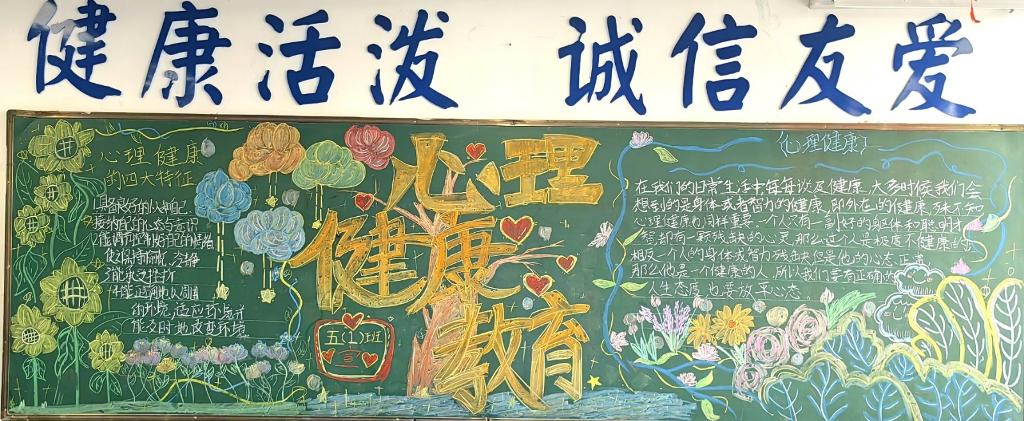 健康活泼 诚信友爱
心理健康
的四大特征
心理
健康
教育
五(1)班
宣
心理健康!
在我们的日常生活中每每谈及健康,大多时候我们会
想到的是身体或者智力的健康,即外在的健康,殊不知
心理健康也同样重要。一个人只有一副好的躯体和聪明才
智却有一颗残缺的心灵,那么这个人是极度不健康的
相反一个人的身体或智力残缺但是他的心态正常
那么他是一个健康的人,所以我们要有正确的
人生态度,也要放平心态。
1.能很好的认识自己
2.能调节控制好自己的情绪
使保持 冷静
3.能承受挫折
4.能正确地认识周围
的环境,适应环境并
能及时地改变环境